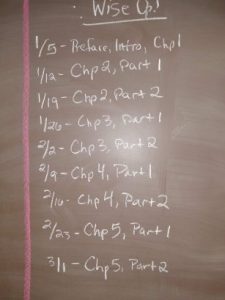 Wise Up!
1/5 - Preface, Intro, Chp 1
1/12 - Chp 2, Part 1
1/19 - Chp 2, Part 2
1/26 - Chp 3, Part 1
2/2 - Chp 3, Part 2
2/9 - Chp 4, Part 1
2/16 - Chp 4, Part 2
2/23 - Chp 5, Part 1
3/1 - Chp 5, Part 2